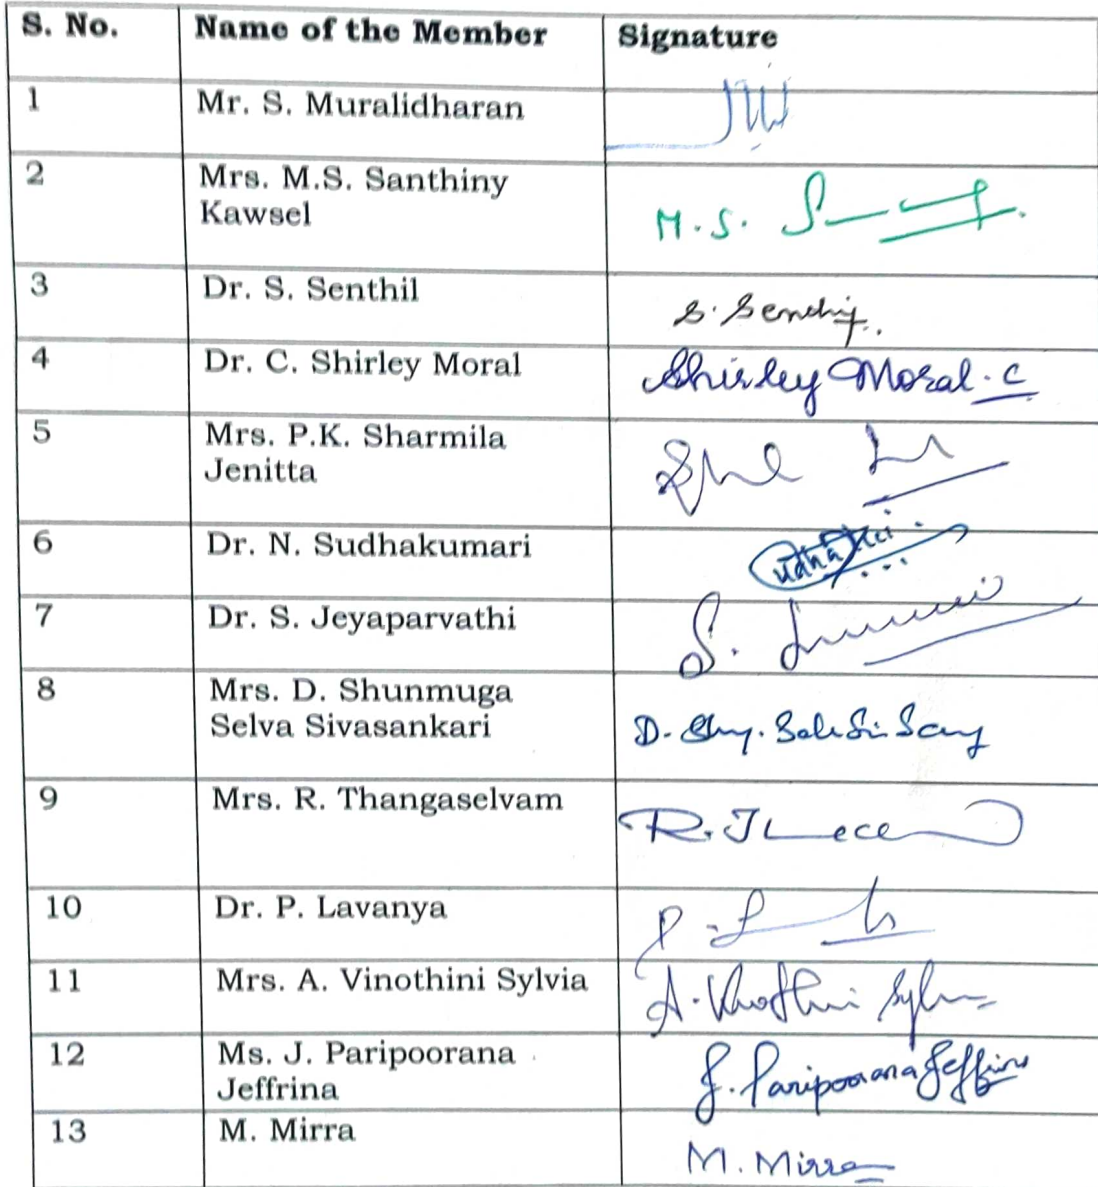 S. No. Name of the Member Signature
1 Mr. S. Muralidharan
2 Mrs. M.S. Santhiny
Kawsel M. S.
3 Dr. S. Senthil S. Senthil
4 Dr. C. Shirley Moral Shirley Moral. C
5 Mrs. P.K. Sharmila
Jenitta
6 Dr. N. Sudhakumari
7 Dr. S. Jeyaparvathi S.
8 Mrs. D. Shunmuga
Selva Sivasankari D.
9 Mrs. R. Thangaselvam R.
10 Dr. P. Lavanya P.
11 Mrs. A. Vinothini Sylvia A. Vinothini Sylvia
12 Ms. J. Paripoorana
Jeffrina J. Paripoorana Jeffrina
13 M. Mirra M. Mirra